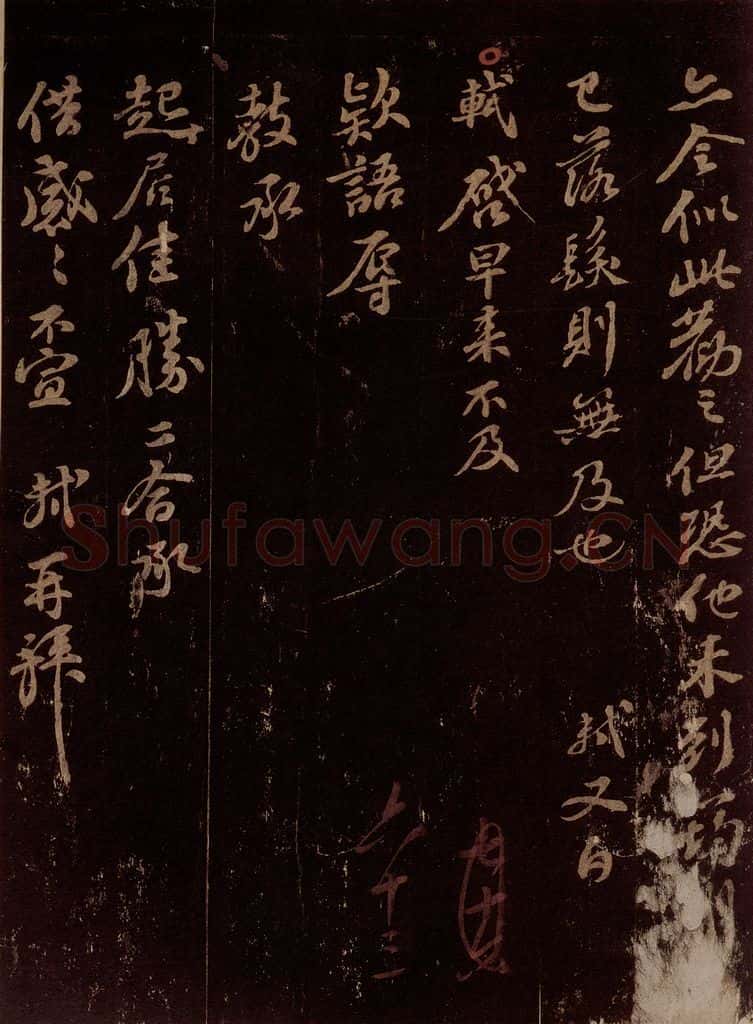 亦合似此勸之但恐他未到筠州
已落髮則無及也　軾又白
軾啓早來不及
欵語辱
教承
起居佳勝二合承
借感〻不宣　軾再拜
六十三
Shufawang.CN